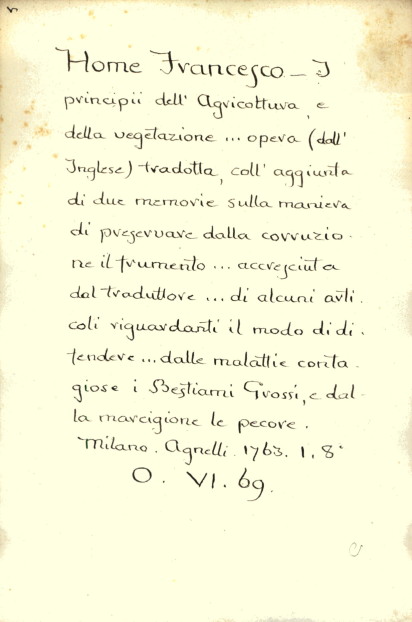 Home Francesco _ I
principii dell' Agricoltura, e
della vegetazione ... opera (dall'
Inglese) tradotta, coll' aggiunta
di due memorie sulla maniera
di preservare dalla corruzio-
ne il frumento ... accresciuta
dal traduttore ... di alcuni arti-
coli riguardanti il modo di di-
fendere ... dalle malattie conta-
giose i Bestiami Grossi, e dal-
la marcigione le pecore.
Milano. Agnelli. 1763. 1. 8°
O. VI. 69.